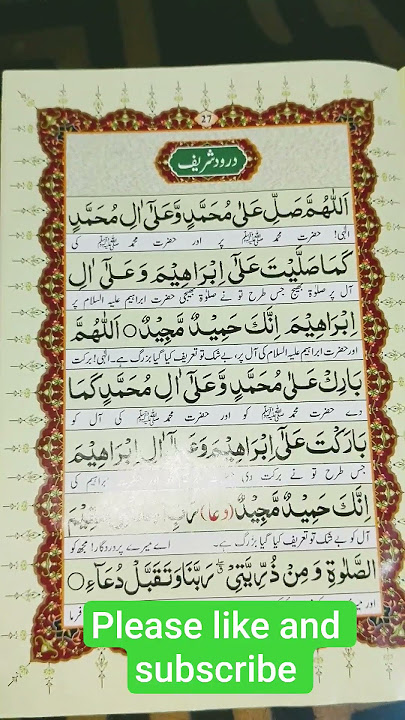 27
درود شریف
اَللّٰهُمَّ صَلِّ عَلٰى مُحَمَّدٍ وَّعَلٰٓى اٰلِ مُحَمَّدٍ
الٰہی! حضرت محمد ﷺ پر اور حضرت محمد ﷺ کی
كَمَا صَلَّيْتَ عَلٰٓى اِبْرَاهِيْمَ وَعَلٰٓى اٰلِ
آل پر صلوٰۃ بھیج جس طرح تو نے صلوٰۃ بھیجی حضرت ابراہیم علیہ السلام پر
اِبْرَاهِيْمَ اِنَّكَ حَمِيْدٌ مَّجِيْدٌ ○ اَللّٰهُمَّ
اور حضرت ابراہیم علیہ السلام کی آل پر، بے شک تو تعریف کیا گیا بزرگ ہے۔ الٰہی! برکت
بَارِكْ عَلٰى مُحَمَّدٍ وَّعَلٰٓى اٰلِ مُحَمَّدٍ كَمَا
دے حضرت محمد ﷺ کو اور حضرت محمد ﷺ کی آل کو
بَارَكْتَ عَلٰٓى اِبْرَاهِيْمَ وَعَلٰٓى اٰلِ اِبْرَاهِيْمَ
جس طرح تو نے برکت دی ابراہیم کی
اِنَّكَ حَمِيْدٌ مَّجِيْدٌ (دعا) رَبِّ
آل کو بے شک تو تعریف کیا گیا بزرگ ہے۔ اے میرے پروردگار! مجھ کو
الصَّلٰوةِ وَمِنْ ذُرِّيَّتِيْ رَبَّنَا وَتَقَبَّلْ دُعَآءِ ○
اور فرما
Please like and
subscribe